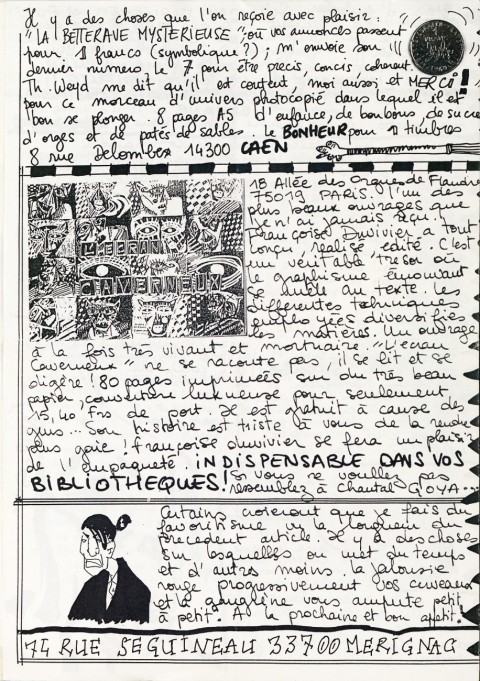 Il y a des choses que l'on reçoie avec plaisir :
"LA BETTERAVE MYSTERIEUSE" où vos annonces passent
pour 1 francs (symbolique ?) ; m'envoie son
dernier numero le 7 pour être precis, concis coherent.
Th. Weyd me dit qu'il est content, moi aussi et MERCI !
pour ce morceau d'univers photocopié dans lequel il est
bon se plonger. 8 pages A5 d'enfance, de bonbons, de sucre
d'orges et de patés de sables. Le BONHEUR pour timbres
8 rue 14300 CAEN
L'ECRAN
CAVERNEUX
18 Allée des Orgues de Flandre
75019 PARIS. L'un des
plus beaux ouvrages que
je n'ai jamais reçu.
Françoise Duvivier a tout
conçu, realisé edité. C'est
un véritable trésor où
le graphisme émouvant
se mêle au texte. Les
differentes techniques
employées diversifies
les matières. Un ouvrage
à la fois très vivant et mortuaire. "L'ecran
Caverneux" ne se raconte pas, il se lit et se
digère ! 80 pages imprimées sur du très beau
papier, couverture luxueuse pour seulement
15,40 frs de port. Il est gratuit à cause des
Son histoire est triste à vous de la rendre
plus gaie ! françoise duvivier se fera un plaisir
de l'empaqueté. INDISPENSABLE DANS VOS
BIBLIOTHEQUES ! Si vous ne voullez pas
ressemblez à Chantal GOYA...
Certains croieront que je fais du
favoritisme vu la longueur du
precedent article. Il y a des choses
sur lesquelles on met du temps
et d'autres moins. La jalousie
ronge progressivement vos cerveaux
et la gangrène vous ampute petit
à petit. A la prochaine et bon appetit !
74 RUE SEGUINEAU 33700 MERIGNAC